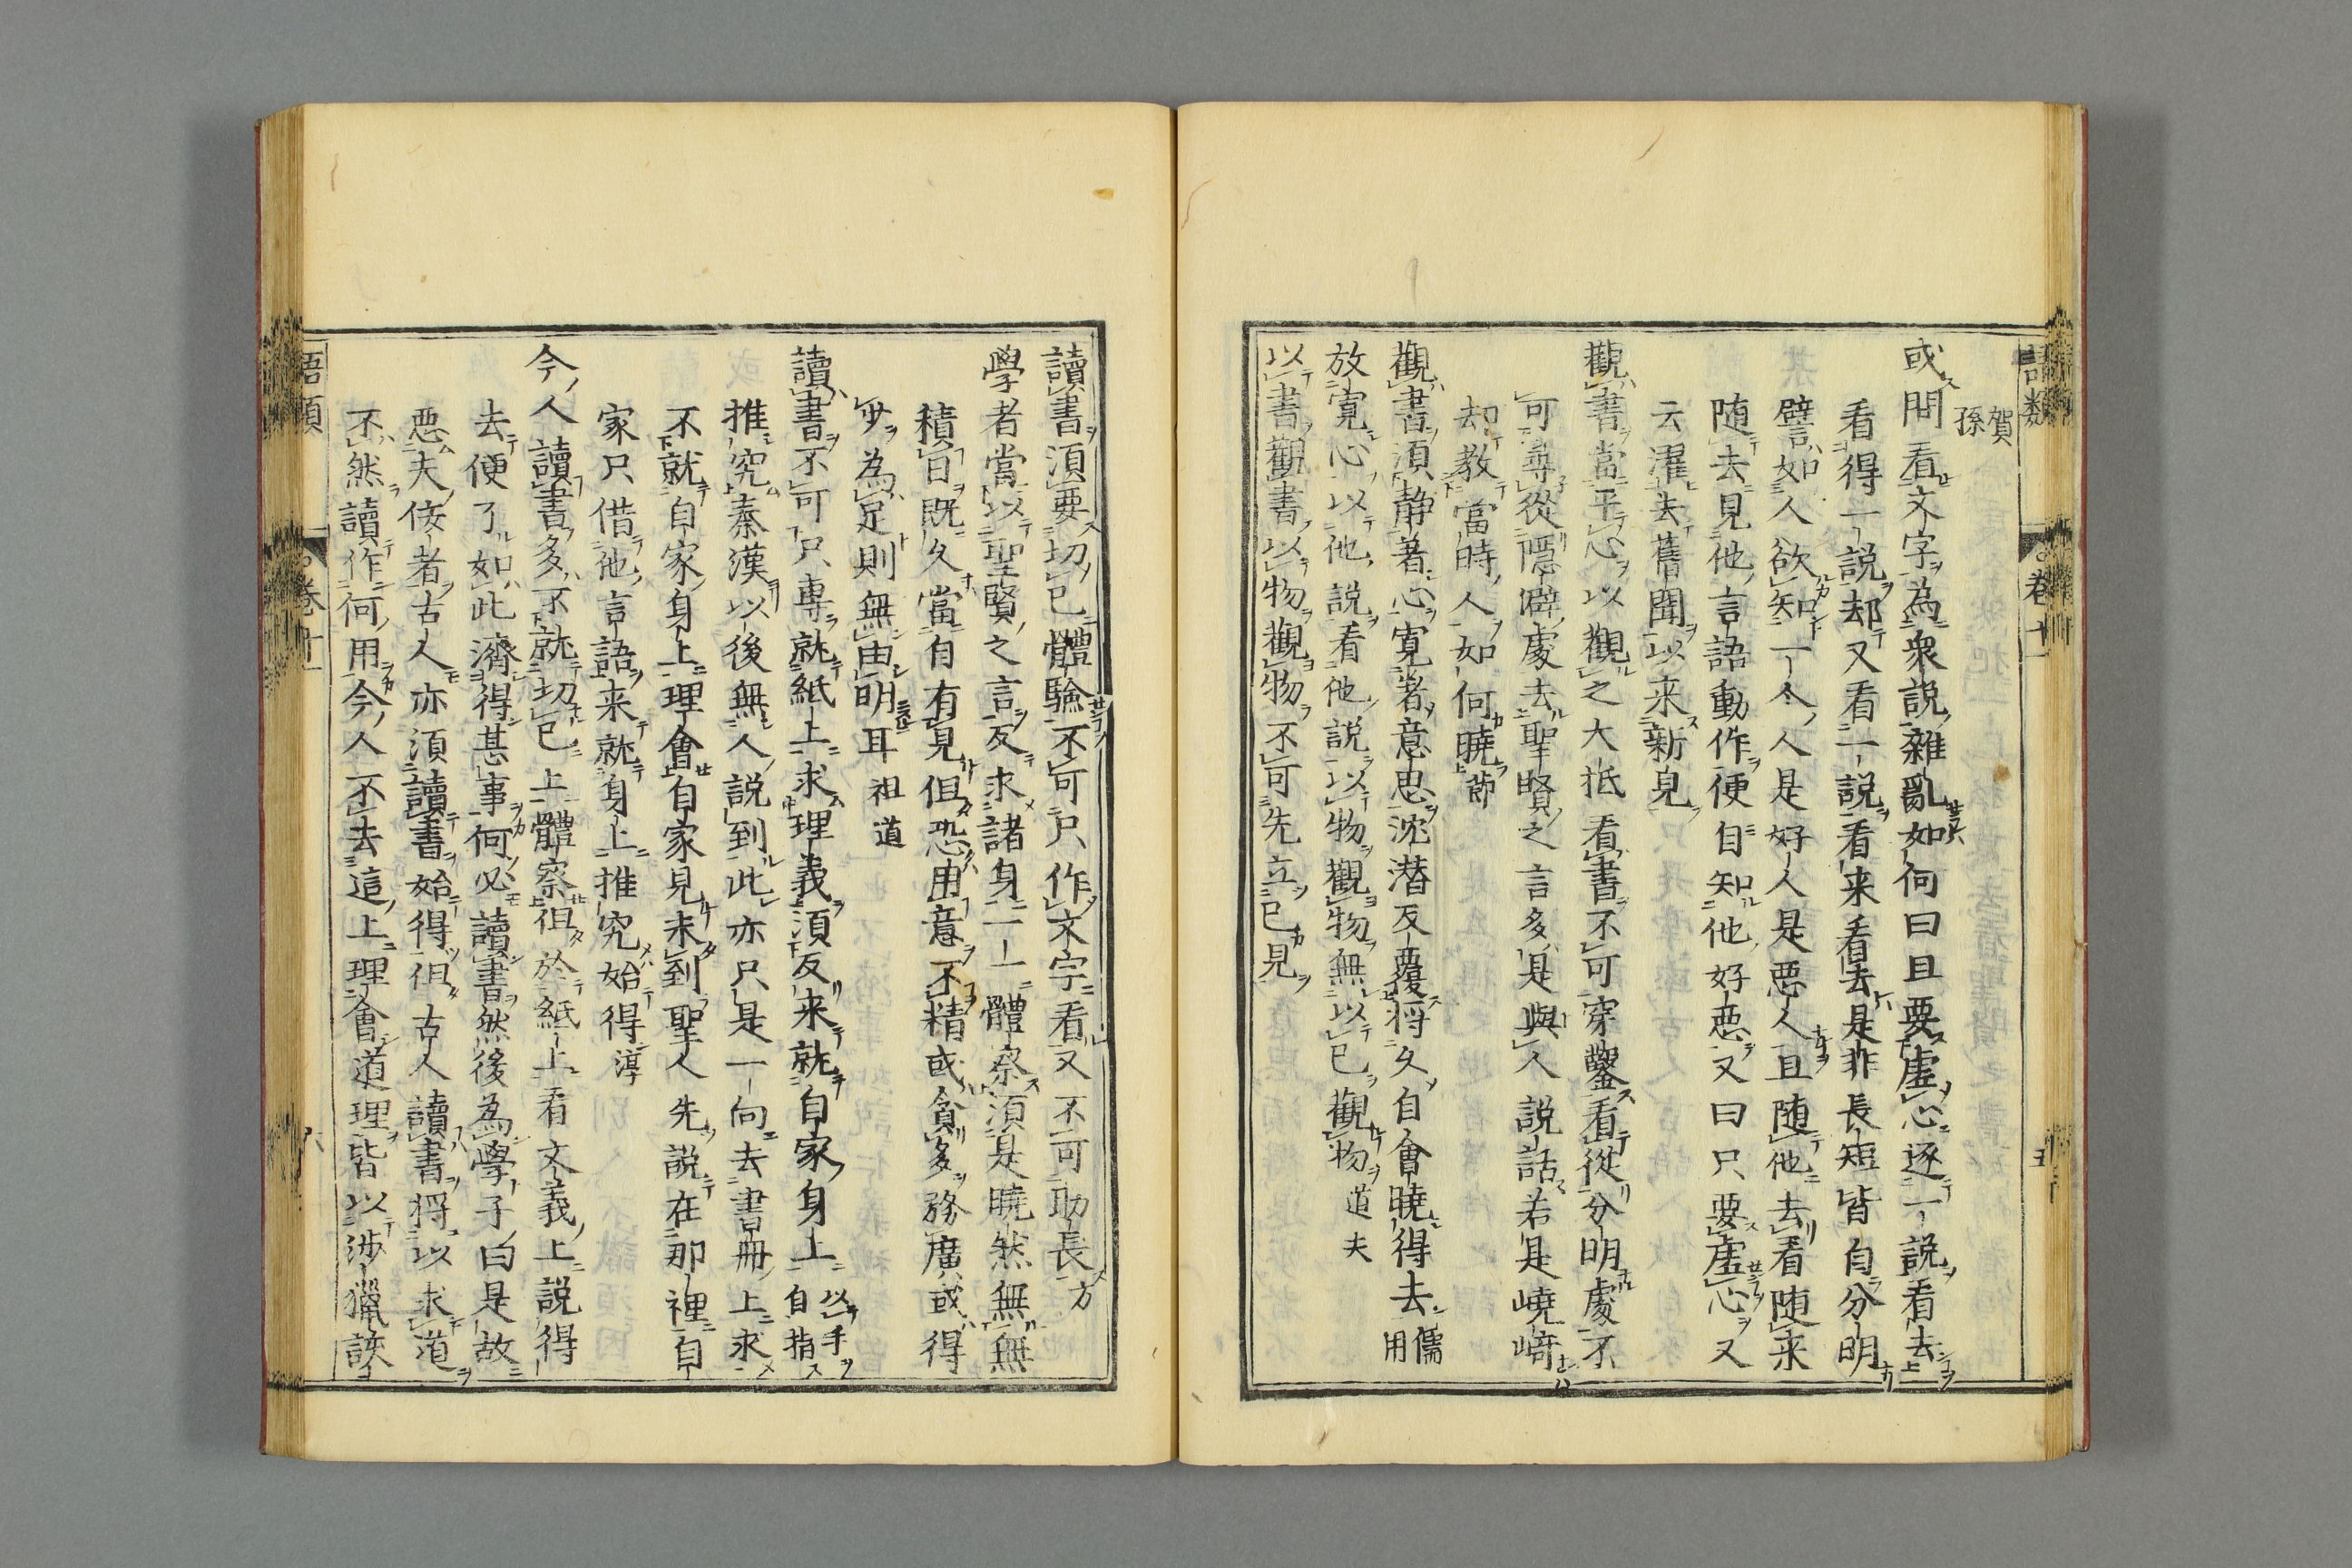 語類
卷十一
五
賀
孫
或問看文字為衆説雜亂如何曰且要虛心逐一説看去
看得一説却又看一説看来看去是非長短皆自分明
譬如人欲知一个人是好人是悪人且随他去看随来
随去見他言語動作便自知他好悪又曰只要虛心又
云濯去舊聞以来新見
觀書當平心以觀之大抵看書不可穿鑿看從分明處不
可尋從隠僻處去聖賢之言多是與人説話若是嶢崎
却教當時人如何曉節
觀書須静著心寛著意思沈潜反覆将久自會曉得去儒
用
放寛心以他説看他説以物觀物無以已觀物道夫
以書觀書以物觀物不可先立已見
讀書須要切已體驗不可只作文字看又不可助長方
學者當以聖賢之言反求諸身一一體察須是曉然無無
積日既久當自有見但恐用意不精或貪多務廣或得
少為足則無由明耳祖道
讀書不可只專就紙上求理義須反来就自家身上以手
自指
推究秦漢以後無人説到此亦只是一向去書冊上求
不就自家身上理會自家見未到聖人先説在那裡自
家只借他言語来就身上推究始得淳
今人讀書多不就切已上體察但於紙上看文義上説得
去便了如此濟得甚事何必讀書然後為學子曰是故
悪夫佞者古人亦須讀書始得但古人讀書将以求道
不然讀作何用今人不去這上理會道理皆以渉獵該
語類
卷十一
六